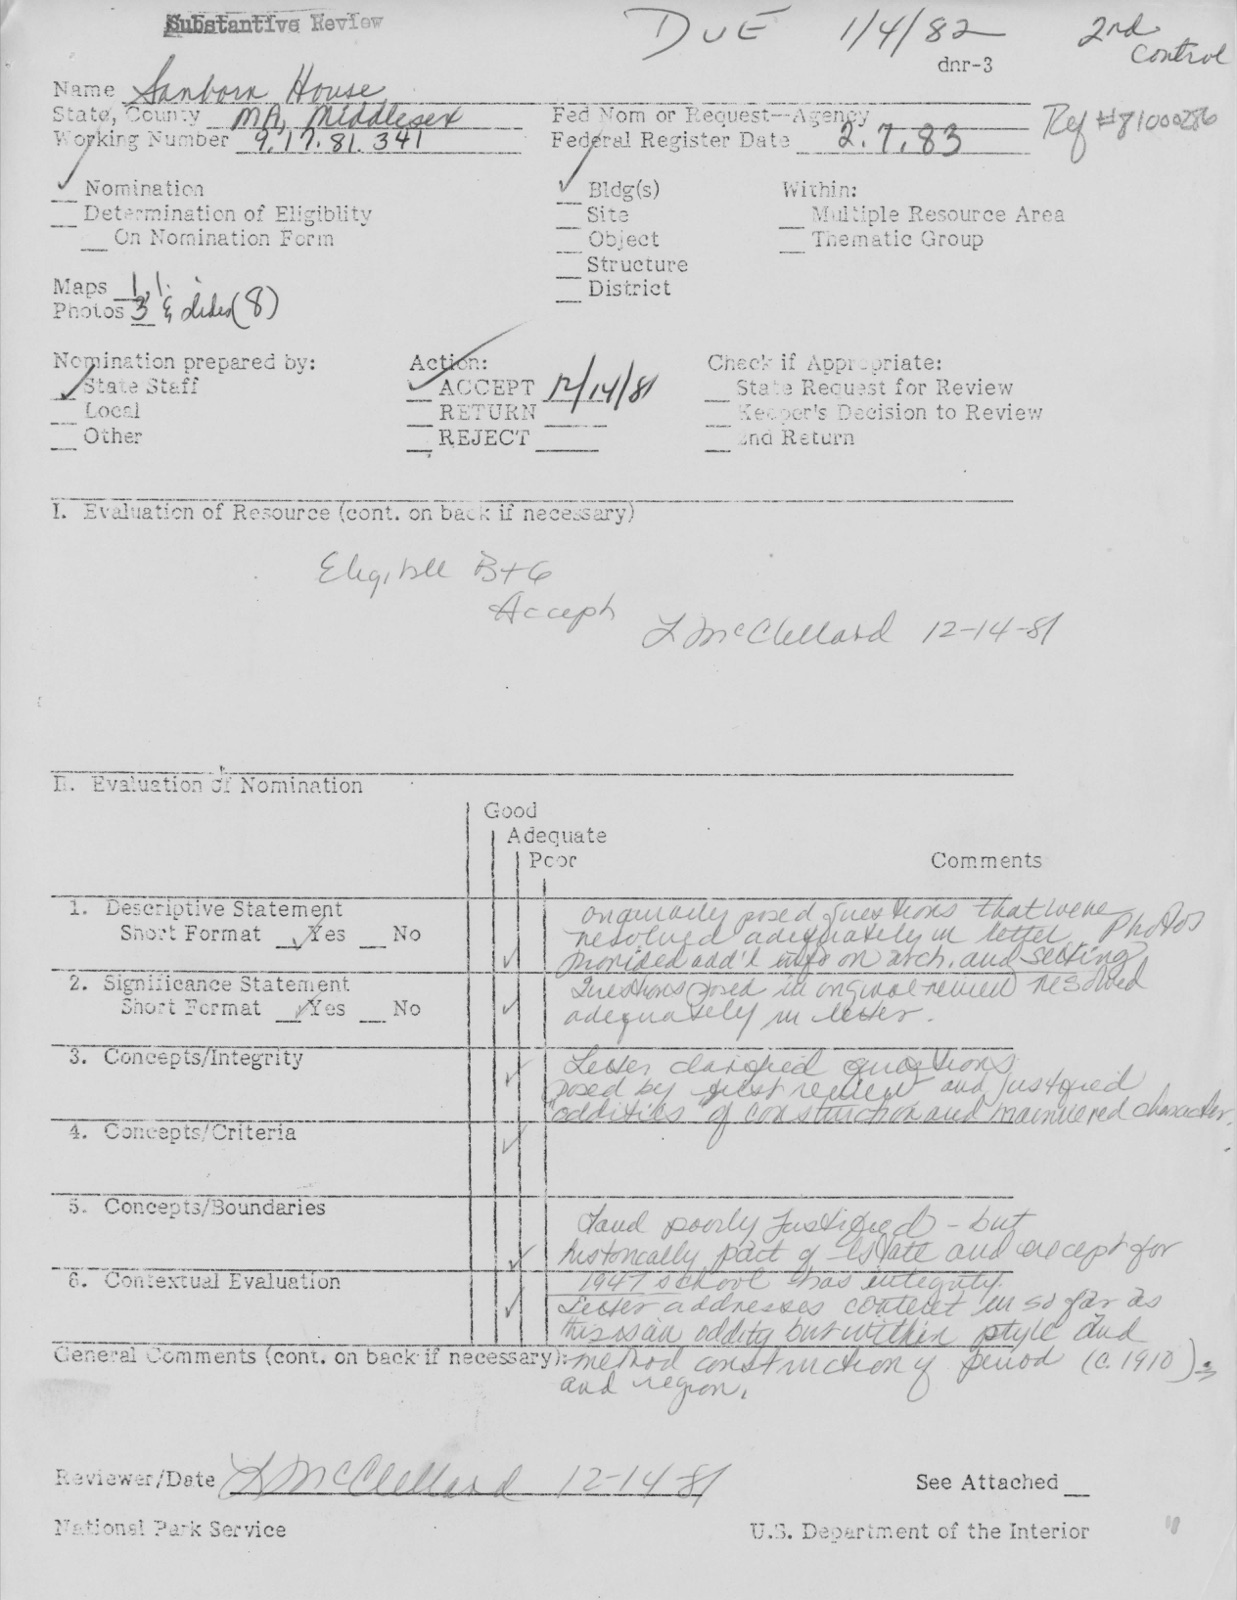 Substantive Review
DUE 1/4/82
2nd
control
dnr-3
Name Sanborn House
State, County MA, Middlesex
Fed Nom or Request--Agency
Ref #81000286
Working Number 9.17.81.341
Federal Register Date 2.7.83
Nomination
Bldg(s)
Within:
Determination of Eligiblity
Site
Multiple Resource Area
On Nomination Form
Object
Thematic Group
Structure
District
Maps 1, 1.
Photos 3 & slides (8)
Nomination prepared by:
Action:
Check if Appropriate:
State Staff
ACCEPT 12/14/81
State Request for Review
Local
RETURN
Keeper's Decision to Review
Other
REJECT
2nd Return
I. Evaluation of Resource (cont. on back if necessary)
Eligible B+C
Accept
L McClelland 12-14-81
II. Evaluation of Nomination
Good
Adequate
Poor
Comments
1. Descriptive Statement
Short Format Yes No
originally posed questions that were
resolved adequately in letter. Photos
provided add'l info on arch. and setting
2. Significance Statement
Short Format Yes No
Questions posed in original review resolved
adequately in letter.
3. Concepts/Integrity
Letter clarified questions
posed by first review and justified
"oddities" of construction and mannered character.
4. Concepts/Criteria
5. Concepts/Boundaries
Land poorly justified - but
historically part of estate and except for
1947 school has integrity.
6. Contextual Evaluation
Letter addresses context in so far as
this is an oddity but within style and
method construction of period (c. 1910)
and region.
General Comments (cont. on back if necessary):
Reviewer/Date L McClelland 12-14-81
See Attached
National Park Service
U.S. Department of the Interior